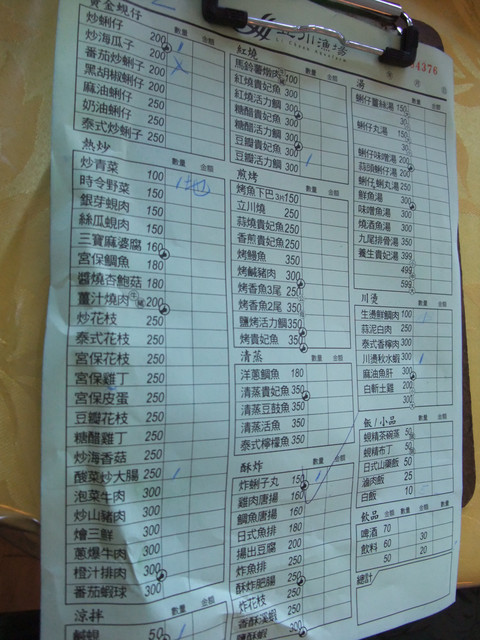 黃金蜆仔
炒蜊仔 200
炒海瓜子 200
番茄炒蜊子 200
黑胡椒蜊仔 200
麻油蜊仔 250
奶油蜊仔 250
泰式炒蜊子 250
熱炒 數量 金額
炒青菜 100
時令野菜 150
銀芽蜆肉 150
絲瓜蜆肉 150
三寶麻婆腐 160
宮保鯛魚 180
醬燒杏鮑菇 180
薑汁燒肉 200
炒花枝 250
泰式花枝 250
宮保花枝 250
宮保雞丁 250
宮保皮蛋 250
豆瓣花枝 250
糖醋雞丁 250
炒海香菇 250
酸菜炒大腸 250
泡菜牛肉 300
炒山豬肉 300
燴三鮮 300
蔥爆牛肉 300
橙汁排肉 300
番茄蝦球 300
涼拌 數量 金額
鹹蜆 50
漁場
紅燒 數量 金額
馬鈴薯燉肉 100
紅燒貴妃魚 300
紅燒活力鯛 300
糖醋貴妃魚 300
糖醋活力鯛 300
豆瓣貴妃魚 300
豆瓣活力鯛 300
煎烤 數量 金額
烤魚下巴 3片 150
立川燒 250
蒜燒貴妃魚 250
香煎貴妃魚 250
烤鰻魚 350
烤鹹豬肉 300
烤香魚3尾 250
烤香魚2尾 350
鹽烤活力鯛 350
烤貴妃魚 350
清蒸 數量 金額
洋蔥鯛魚 180
清蒸貴妃魚 350
清蒸豆鼓魚 350
清蒸活魚 350
泰式檸檬魚 350
酥炸 數量 金額
炸蜊子丸 150
雞肉唐揚 160
鯛魚唐揚 160
日式魚排 180
揚出豆腐 200
炸魚排 250
酥炸肥腸 250
炸花枝 250
香酥溪蝦
鹽酥蝦 300
4376
湯
蜊仔薑絲湯 150
30
蜊仔丸湯 150
30
蜊仔味噌湯 200
蒜頭蜊仔湯 200
蜊仔蜊丸湯 250
鮮魚湯 300
味噌魚湯 300
燒酒魚湯 300
九尾排骨湯 350
養生貴妃湯 399
499
599
川燙 數量 金額
生邊鮮鯛肉 100
蒜泥白肉 250
泰式香檸肉 300
川燙秋水蝦 300
麻油魚肝 300
白斬土雞 200
300
飯/小品 數量 金額
蜆精茶碗蒸 50
蜆精布丁 50
日式山藥飯 50
滷肉飯 25
白飯 10
飲品 金額 數量 金額
啤酒 70
飲料 60 30
50 20
總計